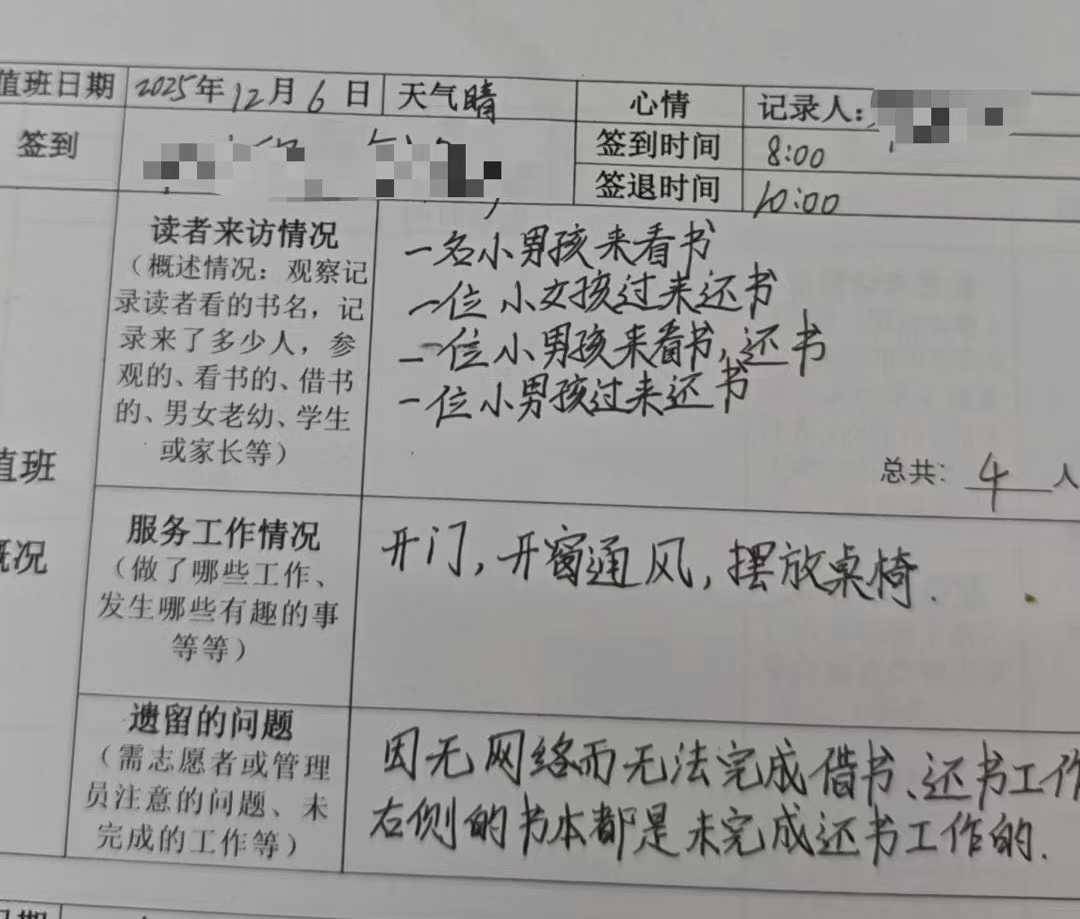 值班日期 2025年12月6日 天气晴 心情 记录人:
签到 签到时间 8:00
签退时间 10:00
读者来访情况
(概述情况:观察记
录读者看的书名,记
录来了多少人,参
观的、看书的、借书
的、男女老幼、学生
或家长等)
一名小男孩来看书
一位小女孩过来还书
一位小男孩来看书,还书
一位小男孩过来还书
总共: 4 人
值班
概况
服务工作情况
(做了哪些工作、
发生哪些有趣的事
等等)
开门,开窗通风,摆放桌椅.
遗留的问题
(需志愿者或管理
员注意的问题、未
完成的工作等)
因无网络而无法完成借书、还书工作
右侧的书本都是未完成还书工作的.